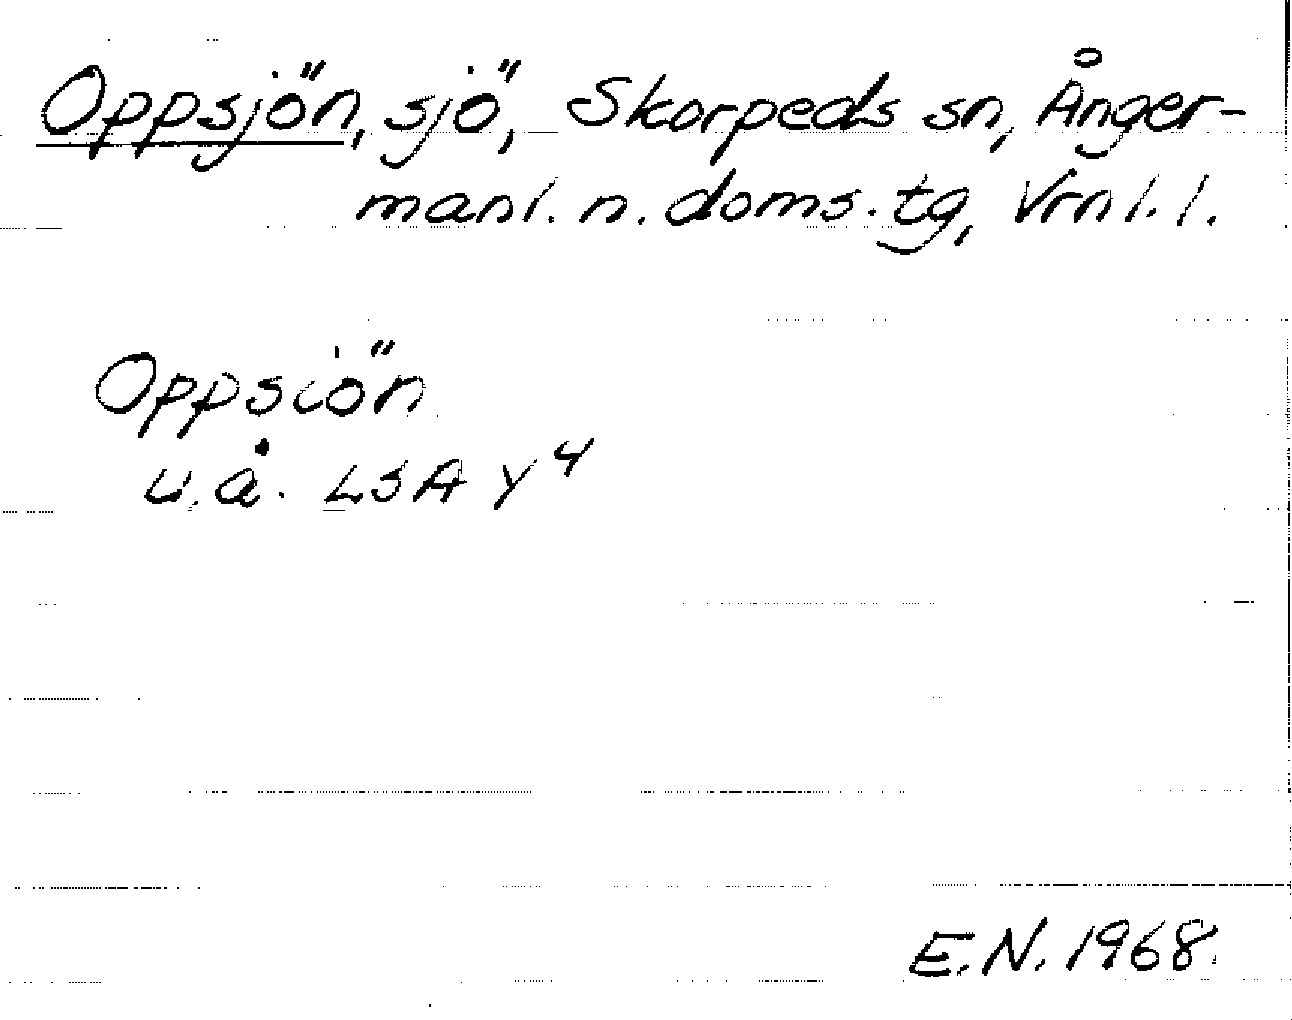 Oppsjön, sjö, Skorpeds sn, Ånger-
manl. n. doms. tg, Vrnl. l.
Oppsiön
u.å. LSA Y4
E.N. 1968